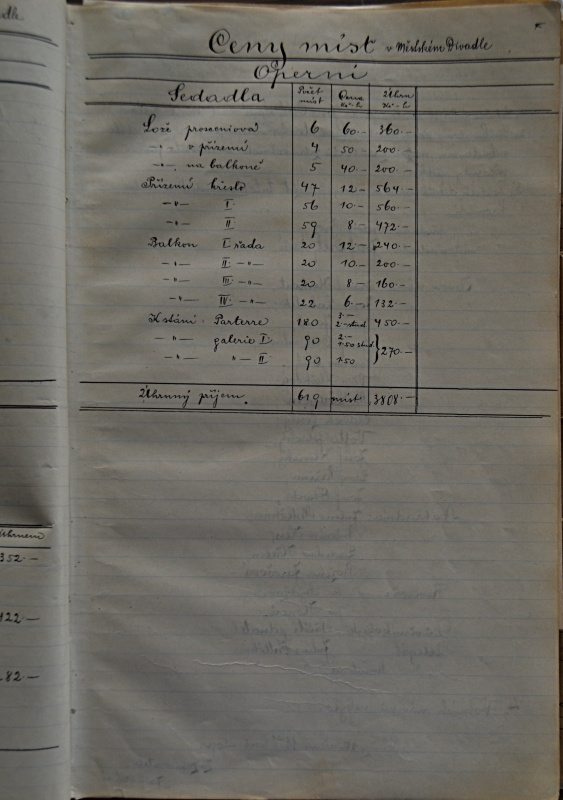 Ceny míst v Městském Divadle
Operní
Sedadla Počet míst Cena Kč-h Úhrn Kč-h
Lože prosceniová 6 60.- 360.-
-"- v přízemí 4 50.- 200.-
-"- na balkoně 5 40.- 200.-
Přízemí křeslo 47 12.- 564.-
-"- I 56 10.- 560.-
-"- II 59 8.- 472.-
Balkon I řada 20 12.- 240.-
-"- II. -"- 20 10.- 200.-
-"- III -"- 20 8.- 160.-
-"- IV -"- 22 6.- 132.-
K stání. Parterre 180 3.- 2.- stud 450.-
-"- galerie I 90 2.- 1.50 stud. 270.-
-"- -"- II 90 1.50
Úhrnný příjem. 619 míst 3808.-
352.-
122.-
82.-